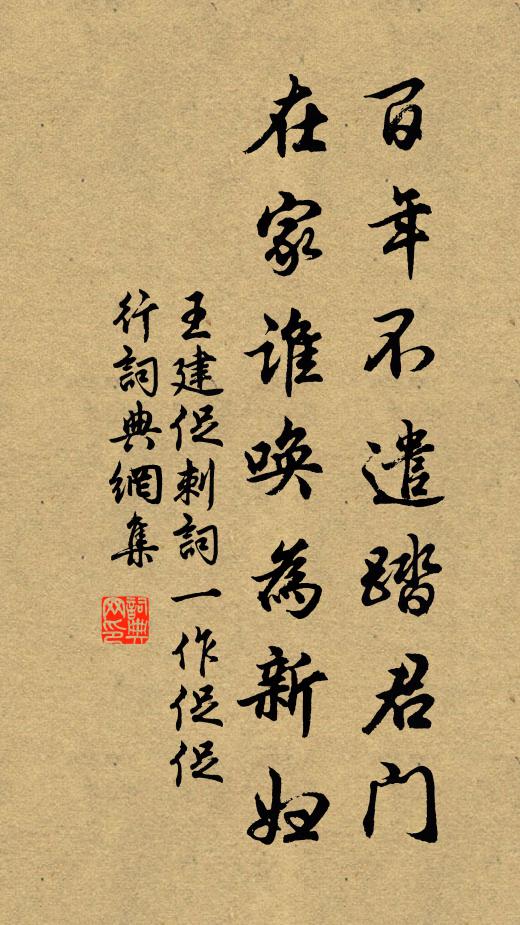 百年不遣踏君门
在家谁唤為新妇
王建促刺詞一作促促
行詞典網集
詞典网印